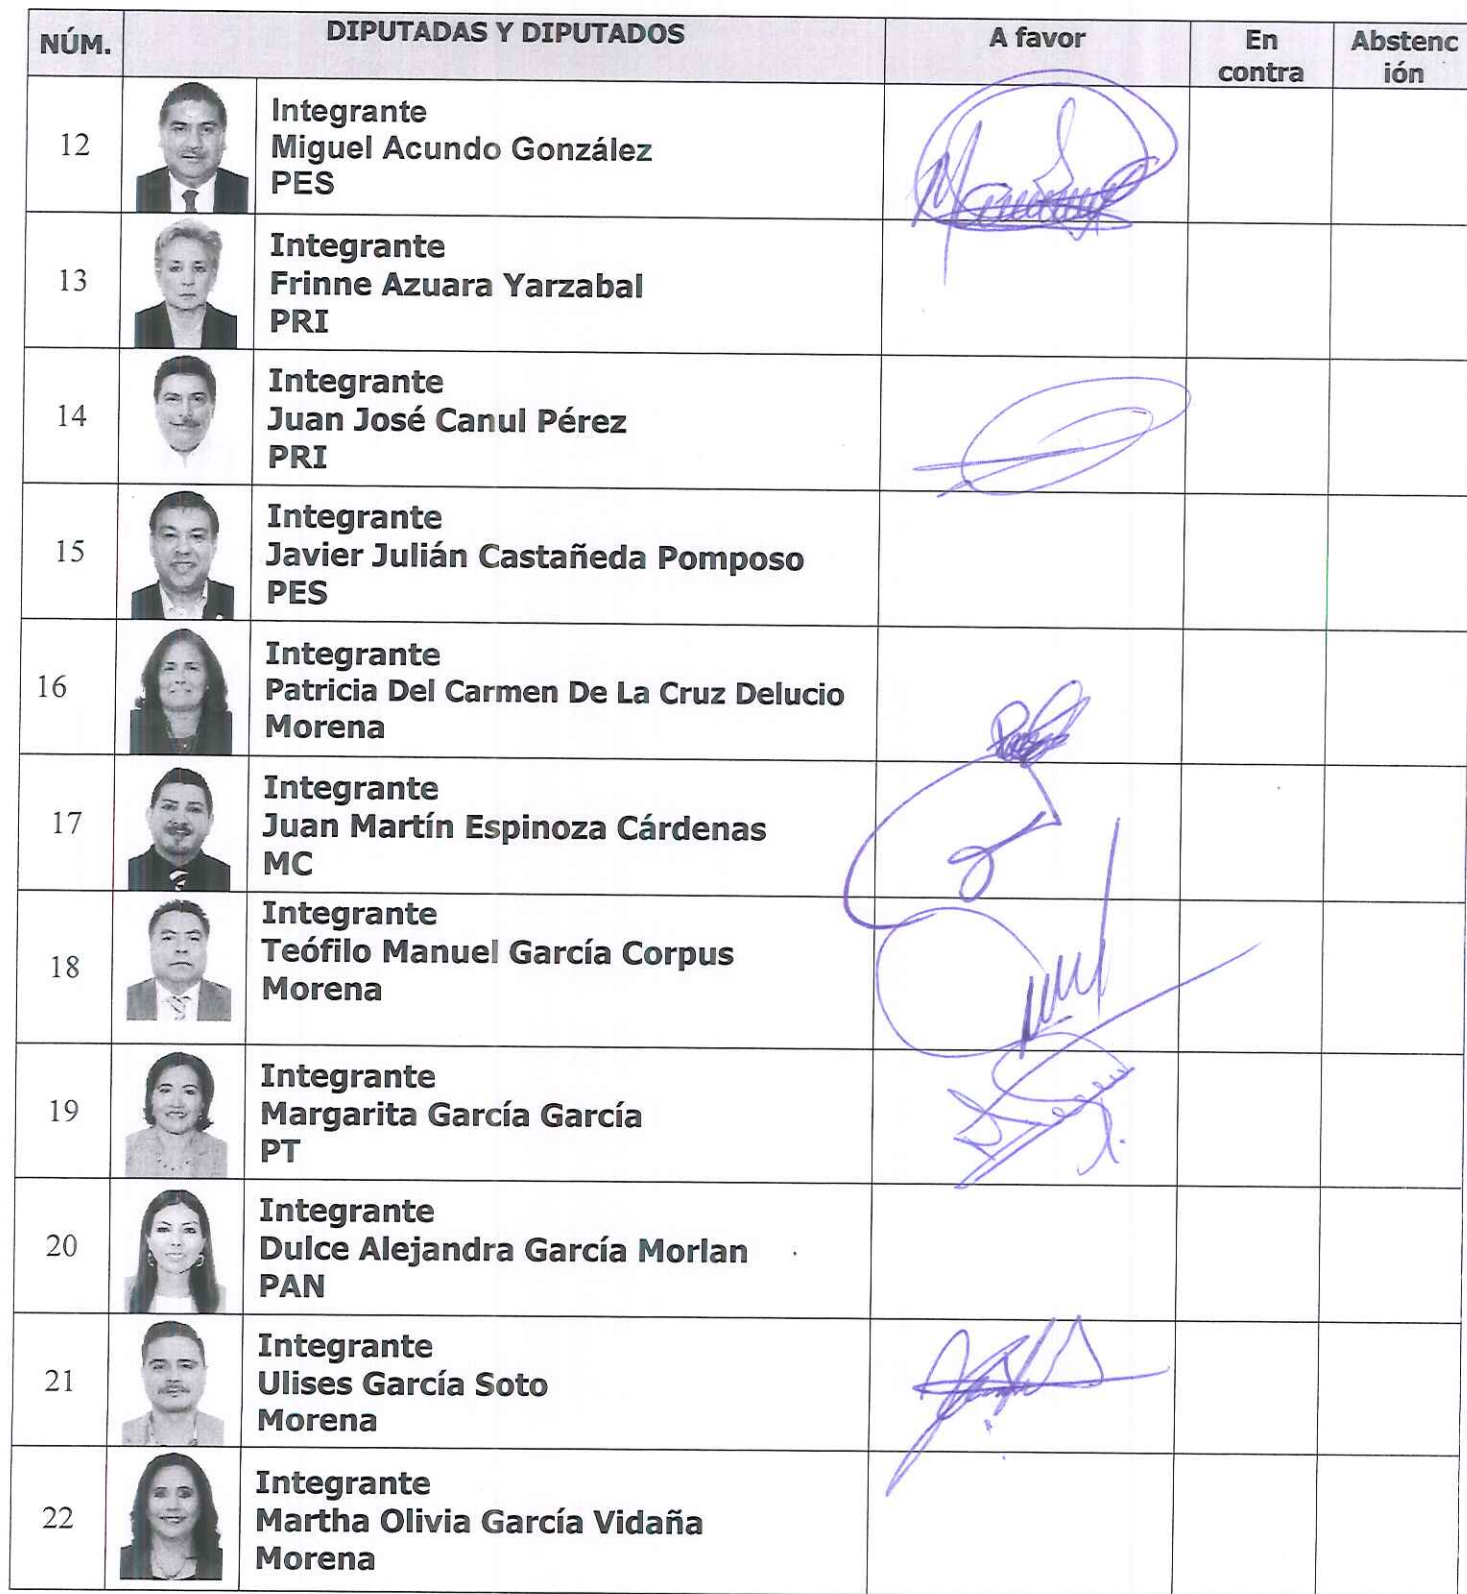 NÚM.
DIPUTADAS Y DIPUTADOS
A favor
En
contra
Abstenc
ión
12
Integrante
Miguel Acundo González
PES
13
Integrante
Frinne Azuara Yarzabal
PRI
14
Integrante
Juan José Canul Pérez
PRI
15
Integrante
Javier Julián Castañeda Pomposo
PES
16
Integrante
Patricia Del Carmen De La Cruz Delucio
Morena
17
Integrante
Juan Martín Espinoza Cárdenas
MC
18
Integrante
Teófilo Manuel García Corpus
Morena
19
Integrante
Margarita García García
PT
20
Integrante
Dulce Alejandra García Morlan
PAN
21
Integrante
Ulises García Soto
Morena
22
Integrante
Martha Olivia García Vidaña
Morena